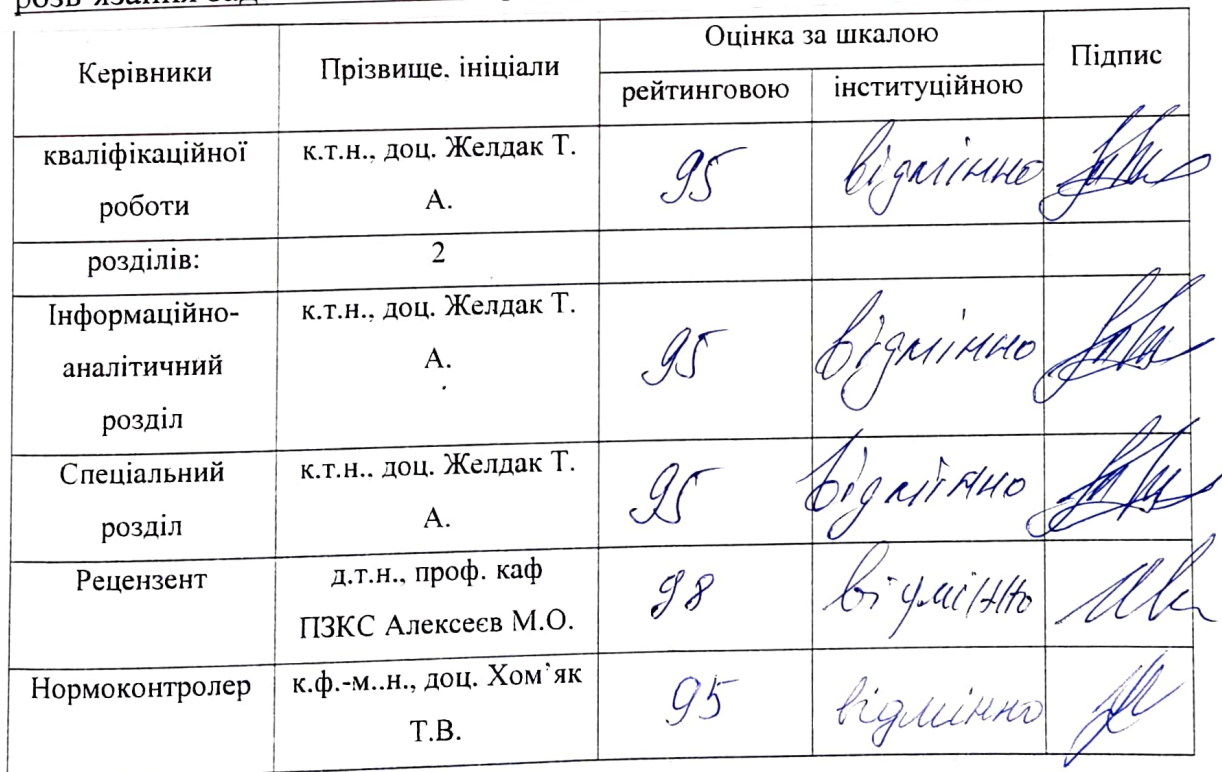 розв'язання
Керівники Прізвище, ініціали Оцінка за шкалою Підпис
рейтинговою інституційною
кваліфікаційної роботи к.т.н., доц. Желдак Т. А. 95 відмінно
розділів: 2
Інформаційно-аналітичний розділ к.т.н., доц. Желдак Т. А. 95 відмінно
Спеціальний розділ к.т.н.. доц. Желдак Т. А. 95 відмінно
Рецензент д.т.н., проф. каф ПЗКС Алексеєв М.О. 98 відмінно
Нормоконтролер к.ф.-м..н., доц. Хом'як Т.В. 95 відмінно